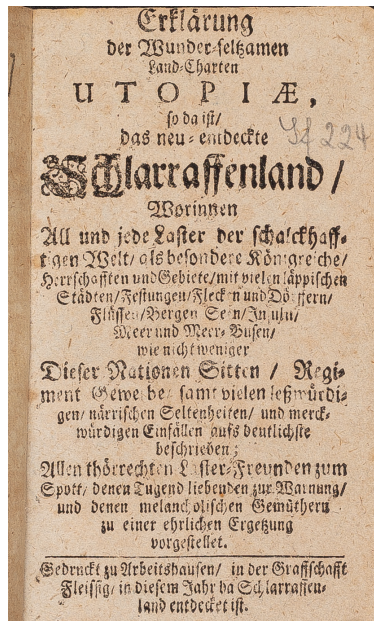 Erklärung
der Wunder-seltzamen
Land-Charten
UTOPIÆ,
so da ist/
das neu-entdeckte
Schlarraffenland/
Worinnen
All und jede Laster der schalckhaff-
tigen Welt/ als besondere Königreiche/
Herrschafften und Gebiete/ mit vielen läppischen
Städten/ Festungen/ Flecken und Dörffern/
Flüssen/ Bergen Seen/ Insuln/
Meer und Meer-Busen/
wie nicht weniger
Dieser Nationen Sitten/ Regi-
ment Gewerbe/ samt vielen leßwürdi-
gen/ närrischen Seltenheiten/ und merck-
würdigen Einfällen aufs deutlichste
beschrieben;
Allen thörrechten Laster-Freunden zum
Spott/ denen Tugend liebenden zur Warnung/
und denen melancholischen Gemüthern
zu einer ehrlichen Ergetzung
vorgestellet.
Gedruckt zu Arbeitshausen/ in der Graffschafft
Fleissig/ in diesem Jahr da Schlarraffen-
land entdecket ist.